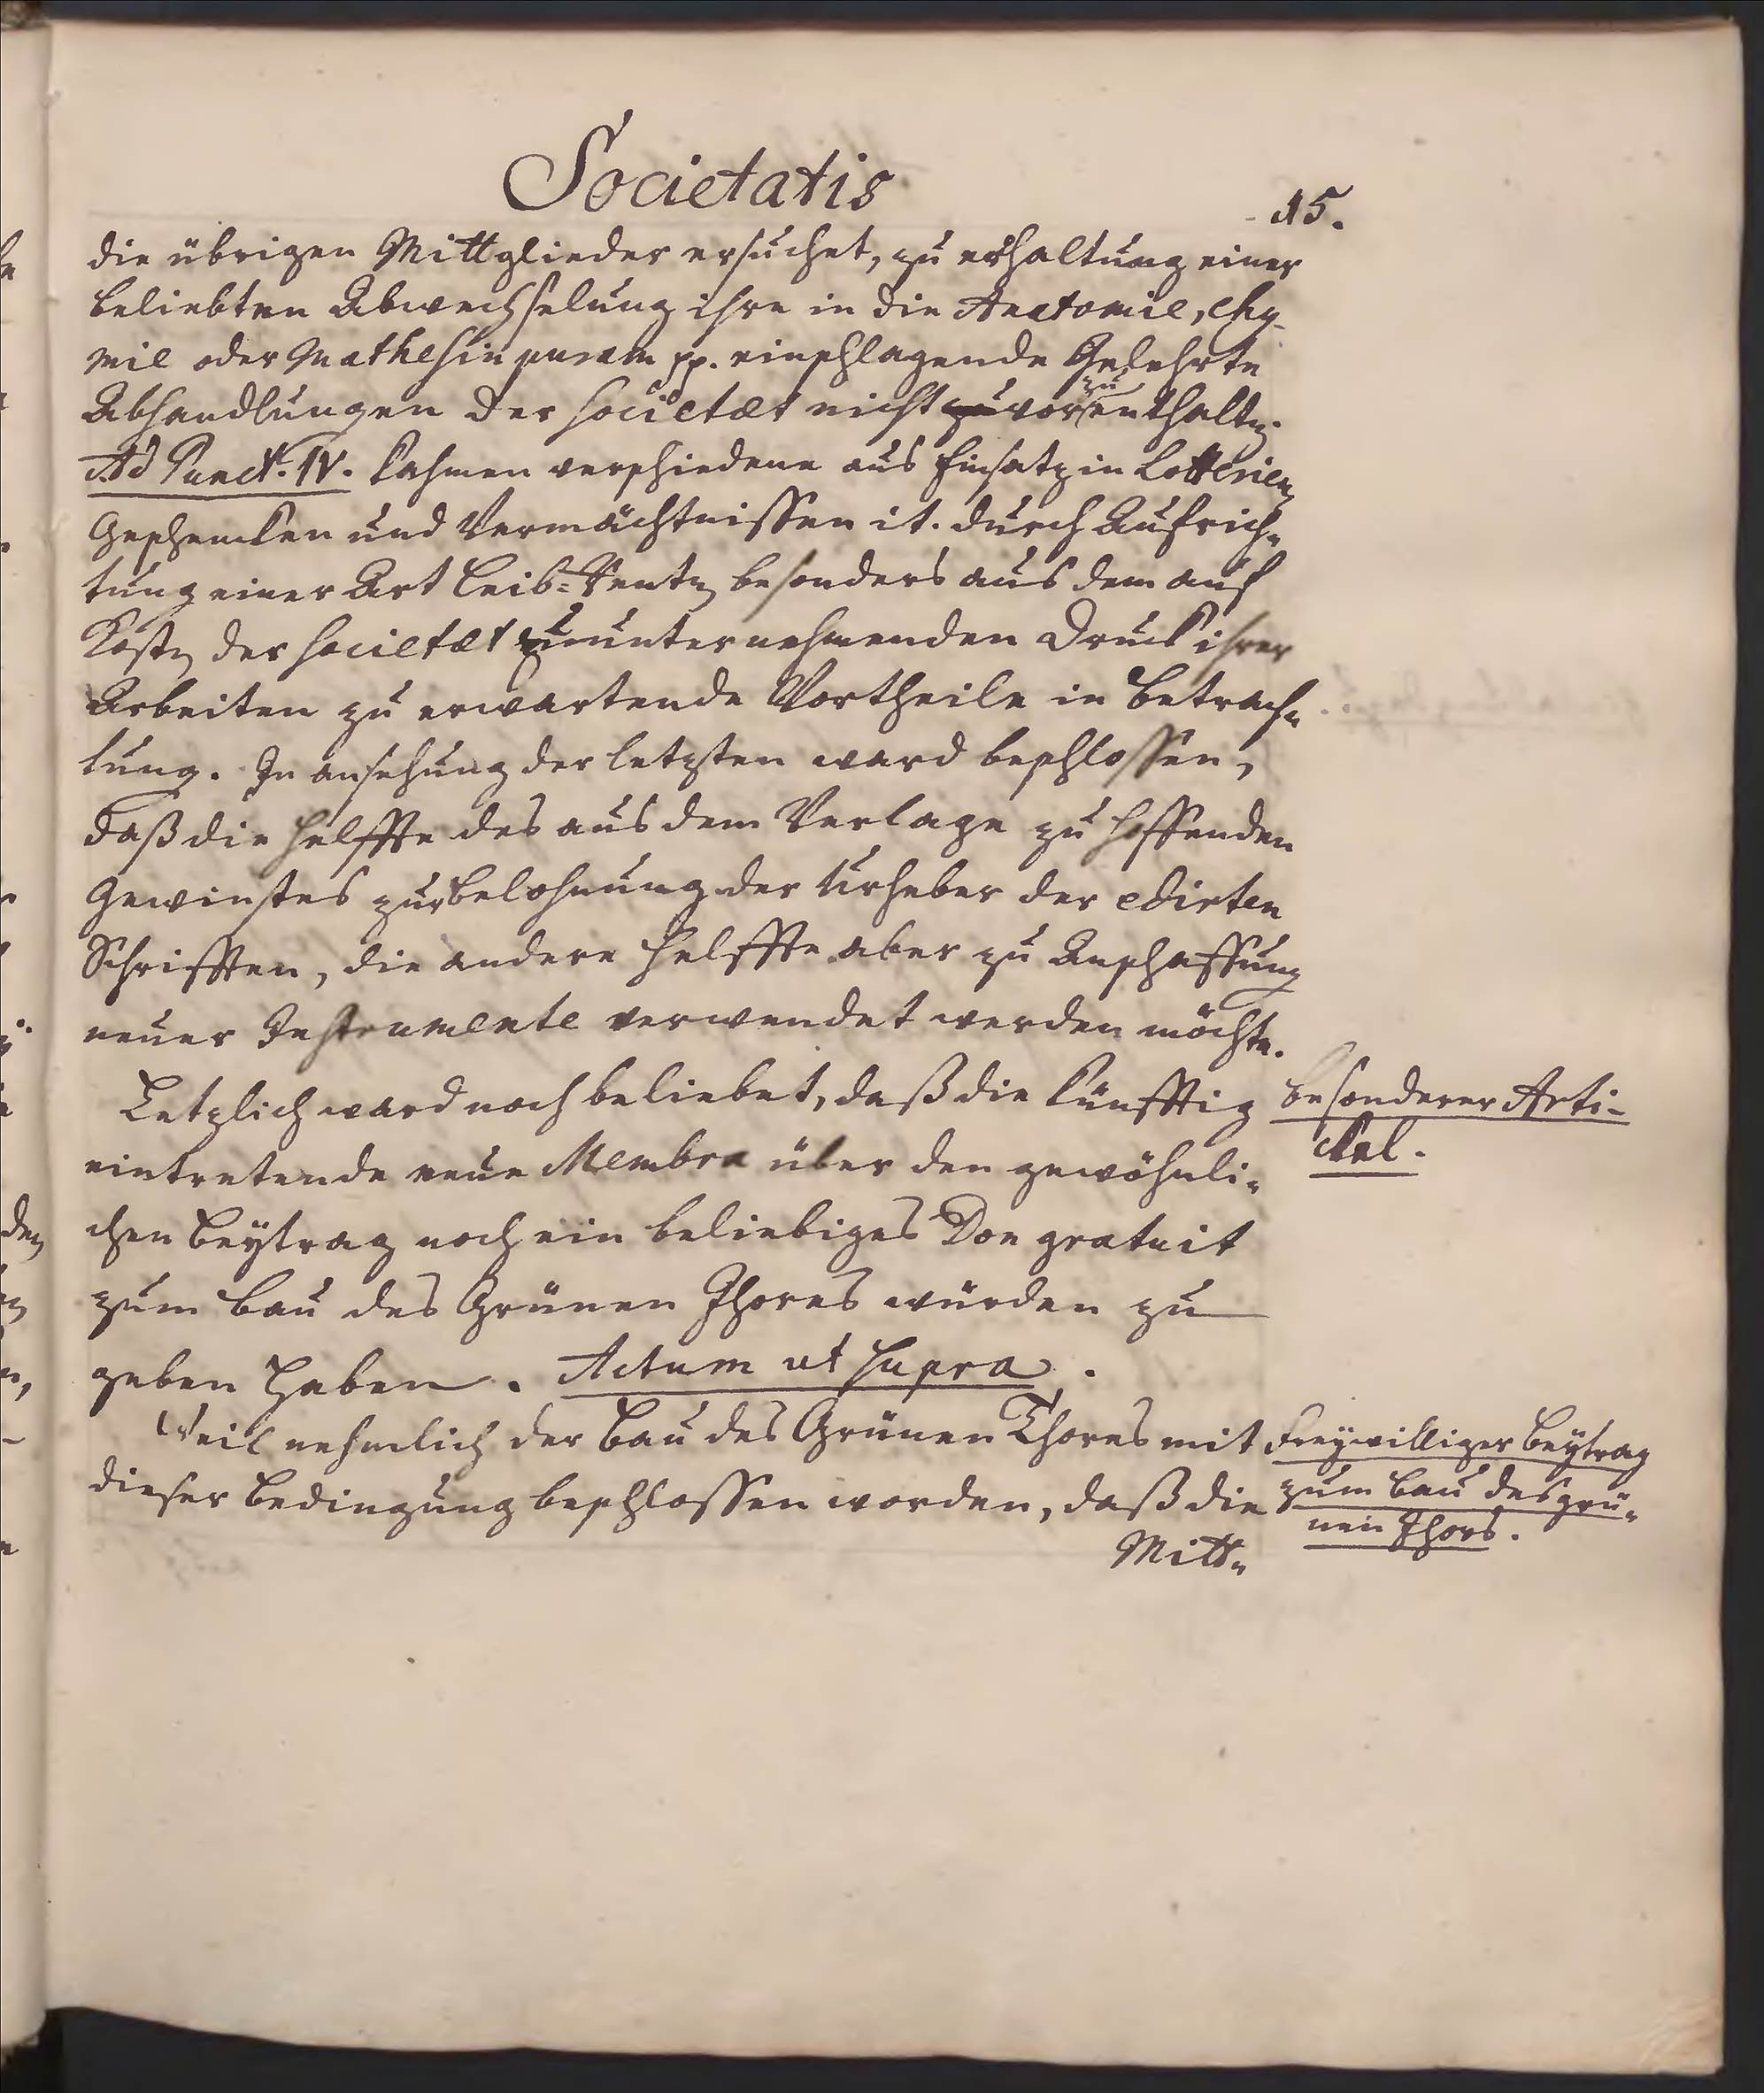 Societatis
15.
die übrigen Mittglieder ersuchet, zu erhaltung einer
beliebten Abwechselung ihre in die Anatomie, Chy-
mie oder Mathesin puram pp. einschlagende Gelehrte
Abhandlungen der Societæt nicht zu vor zu enthalten.
Ad Punct. IV. kahmen verschiedene aus Einsatz in Lotterien
Geschencken und Vermächtnissen it. durch Aufrich-
tung einer Art Leib-Renten besonders aus dem auf
Kosten der Societæt zu unternehmenden Druck ihrer
Arbeiten zu erwartende Vortheile in Betrach-
tung. In ansehung der letzten ward beschlossen,
daß die Helffte des aus dem Verlage zu hoffenden
Gewinstes zur Belohnung der Urheber der edirten
Schrifften, die andere Helffte aber zu Anschaffung
neuer Instrumente verwendet werden möchte.
Letzlich ward noch beliebet, daß die künfftig
besonderer Arti-
ckel.
eintretende neue Membra über den gewöhnli-
chen Beytrag noch ein beliebiges Don gratuit
zum Bau des Grünen Thores würden zu
geben haben. Actum ut supra.
Weil nehmlich der Bau des Grünen Thores mit
dieser Bedingung beschlossen worden, daß die
Freywilliger Beytrag
zum Bau des grü-
nen Thors.
Mitt-